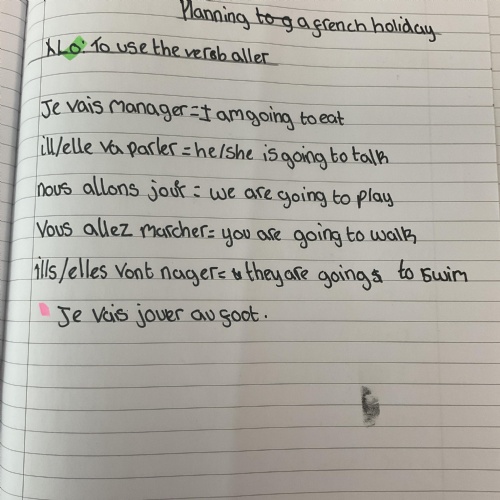 Planning to g a french holiday
LO: To use the verb aller
Je vais manager = I am going to eat
ill/elle va parler = he/she is going to talk
nous allons jour = we are going to play
Vous allez marcher = you are going to walk
ills/elles vont nager = they are going to swim
Je vais jouer au foot.